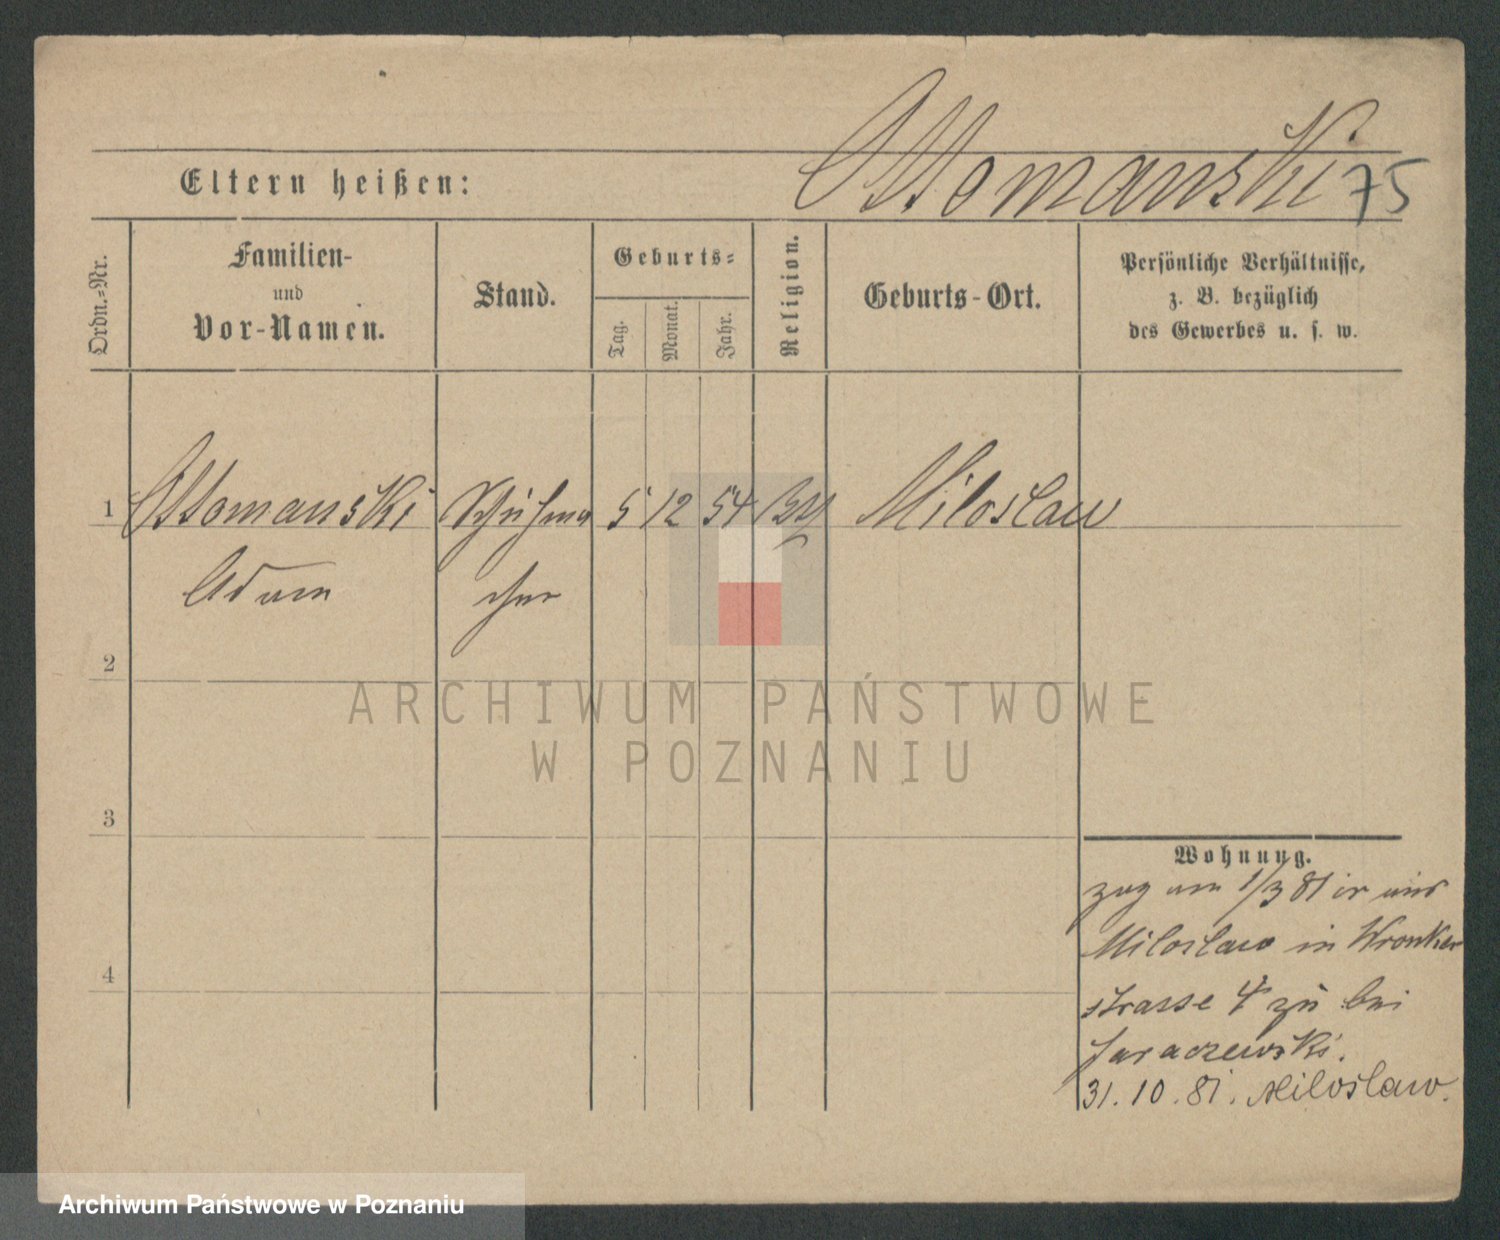 Ottomanski 75
Eltern heißen:
Ordn.-Nr.
Familien-
und
Vor-Namen.
Stand.
Geburts-
Tag.
Monat.
Jahr.
Religion.
Geburts-Ort.
Persönliche Verhältnisse,
z. B. bezüglich
des Gewerbes u. s. w.
1 Ottomanski Schuhma 5 12 54 Miloslaw
Adam cher
2
ARCHIWUM PAŃSTWOWE
W POZNANIU
3
Wohnung.
zog am 1/3 81 er aus
Miloslaw in Wronker
4
strasse 4 zu bei
Jaraczewski.
31.10.81. Miloslaw.
Archiwum Państwowe w Poznaniu